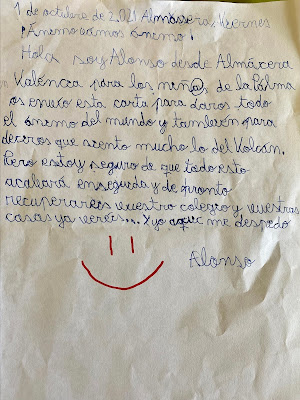 1 de octubre de 2.021 Almàssera, Viernes
¡Ánimo vamos ánimo!
Hola soy Alonso desde Almácera
Valéncia para los niñ@s de la Palma
os envío esta carta para daros todo
el ánimo del mundo y también para
deciros que siento mucho lo del Volcán.
Pero estoy seguro de que todo esto
acabará enseguida y de pronto
recuperareis vuestro colegio y vuestras
casas ya vereis... Y yo aquí me despido
Alonso